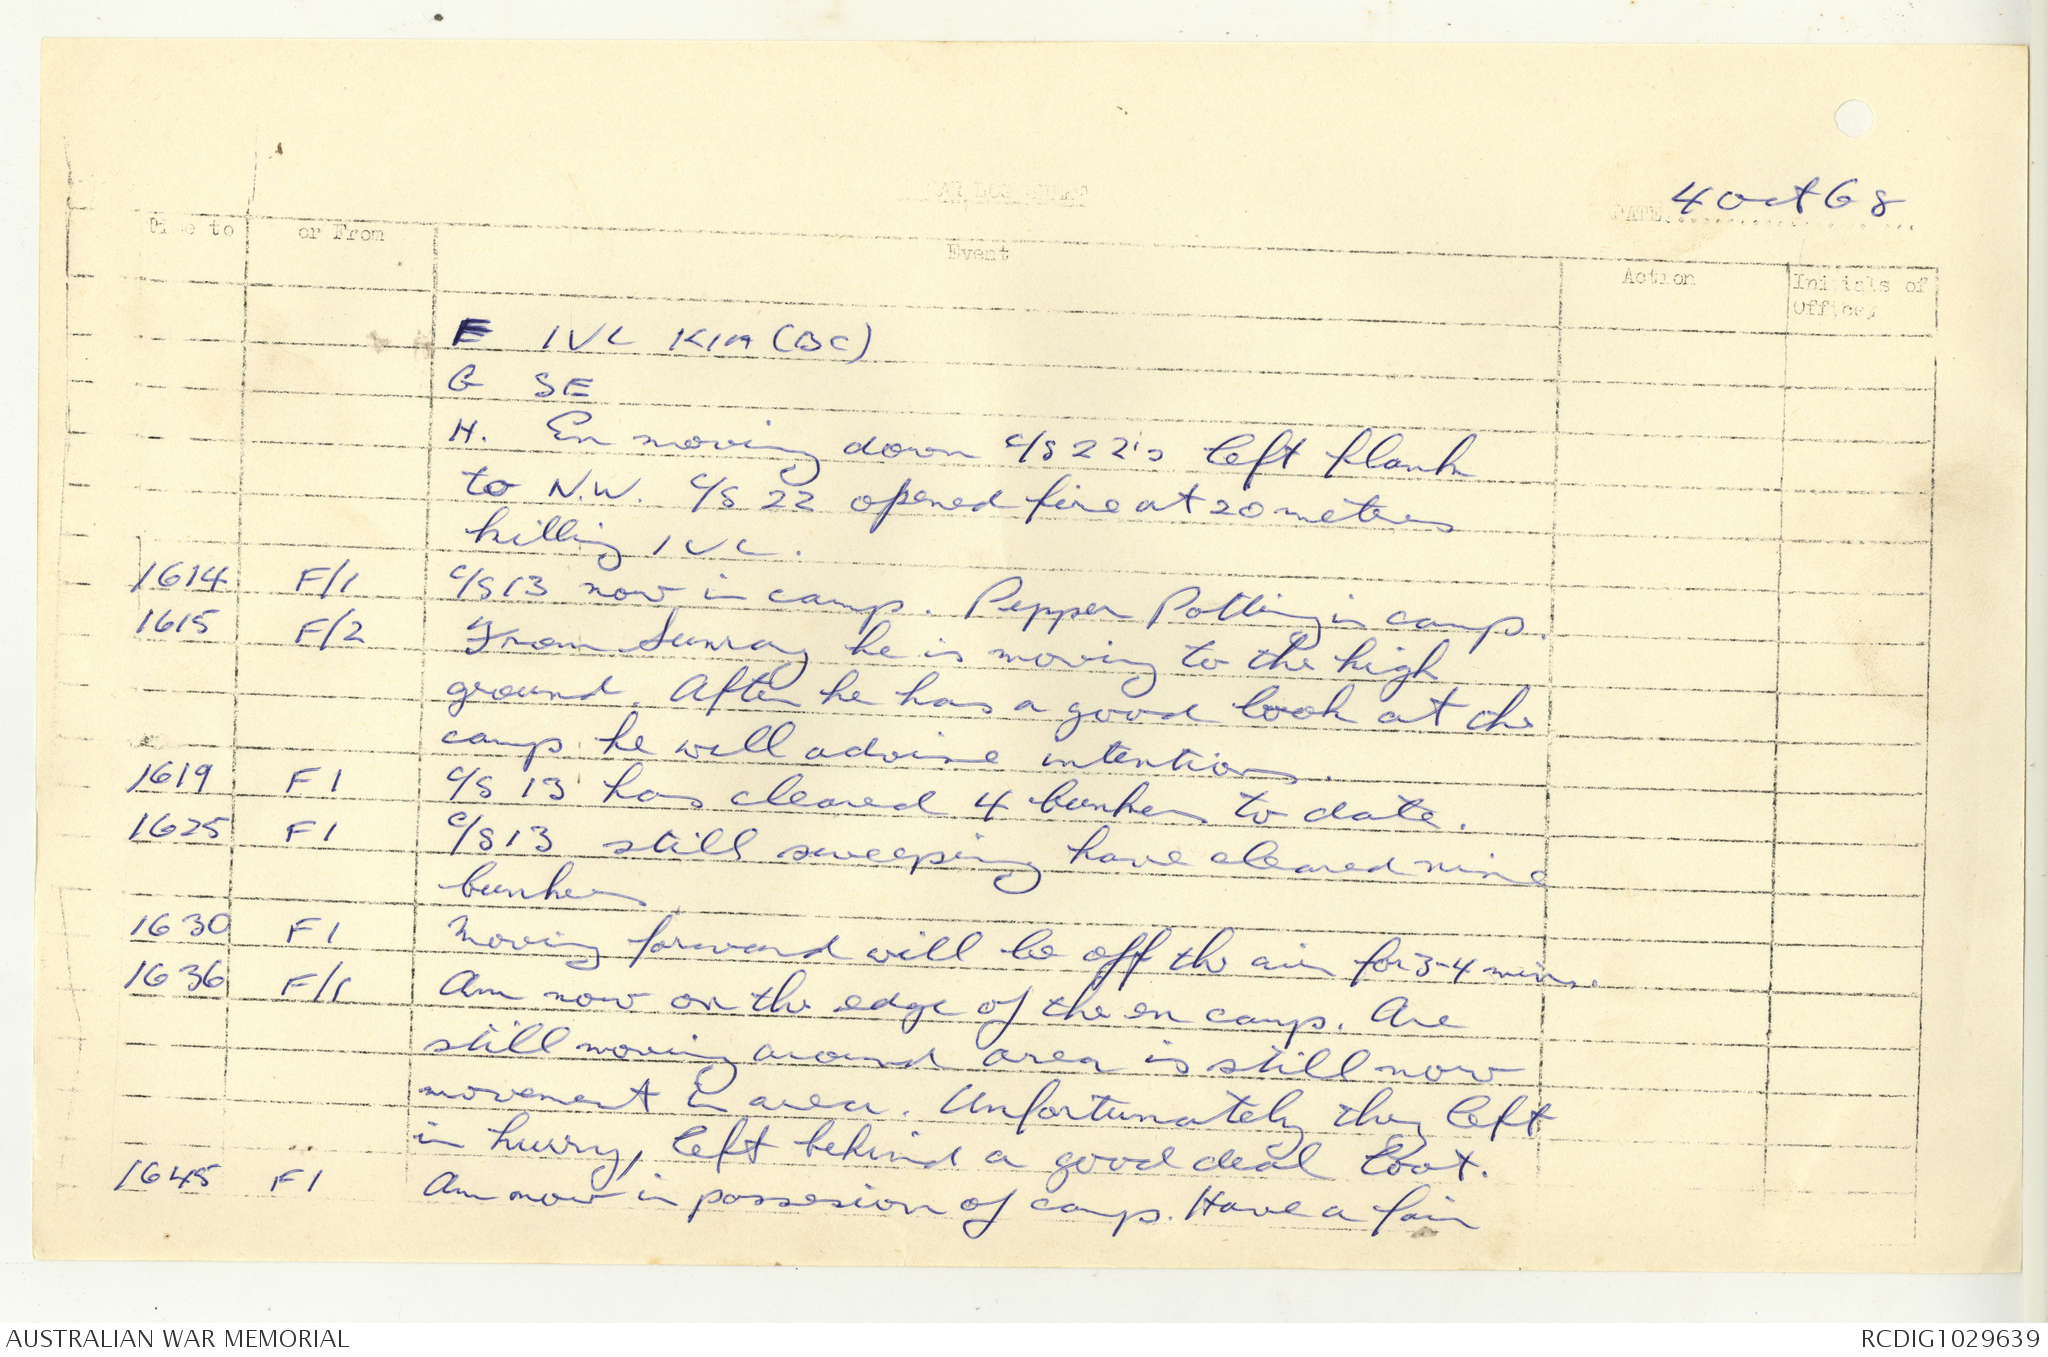 DATE 4 Oct 68
Time to or From Event Action Initials of Officer
F 1 VC KIA (BC)
G SE
H. En moving down c/s 22's left flank
to N.W. c/s 22 opened fire at 20 metres
killing 1 VC.
1614 F/1 c/s 13 now in camp. Pepper Potting in camp.
1615 F/2 From Sunray he is moving to the high
ground. After he has a good look at the
camp he will advise intentions.
1619 F1 c/s 13 has cleared 4 bunkers to date.
1625 F1 c/s 13 still sweeping have cleared nine
bunkers.
1630 F1 Moving forward will be off the air for 3-4 mins.
1636 F/1 Am now on the edge of the en camp. Are
still moving around area is still now
movement in area. Unfortunately they left
in hurry, left behind a good deal loot.
1645 F1 Am now in possesion of camp. Have a fair
AUSTRALIAN WAR MEMORIAL RCDIG1029639